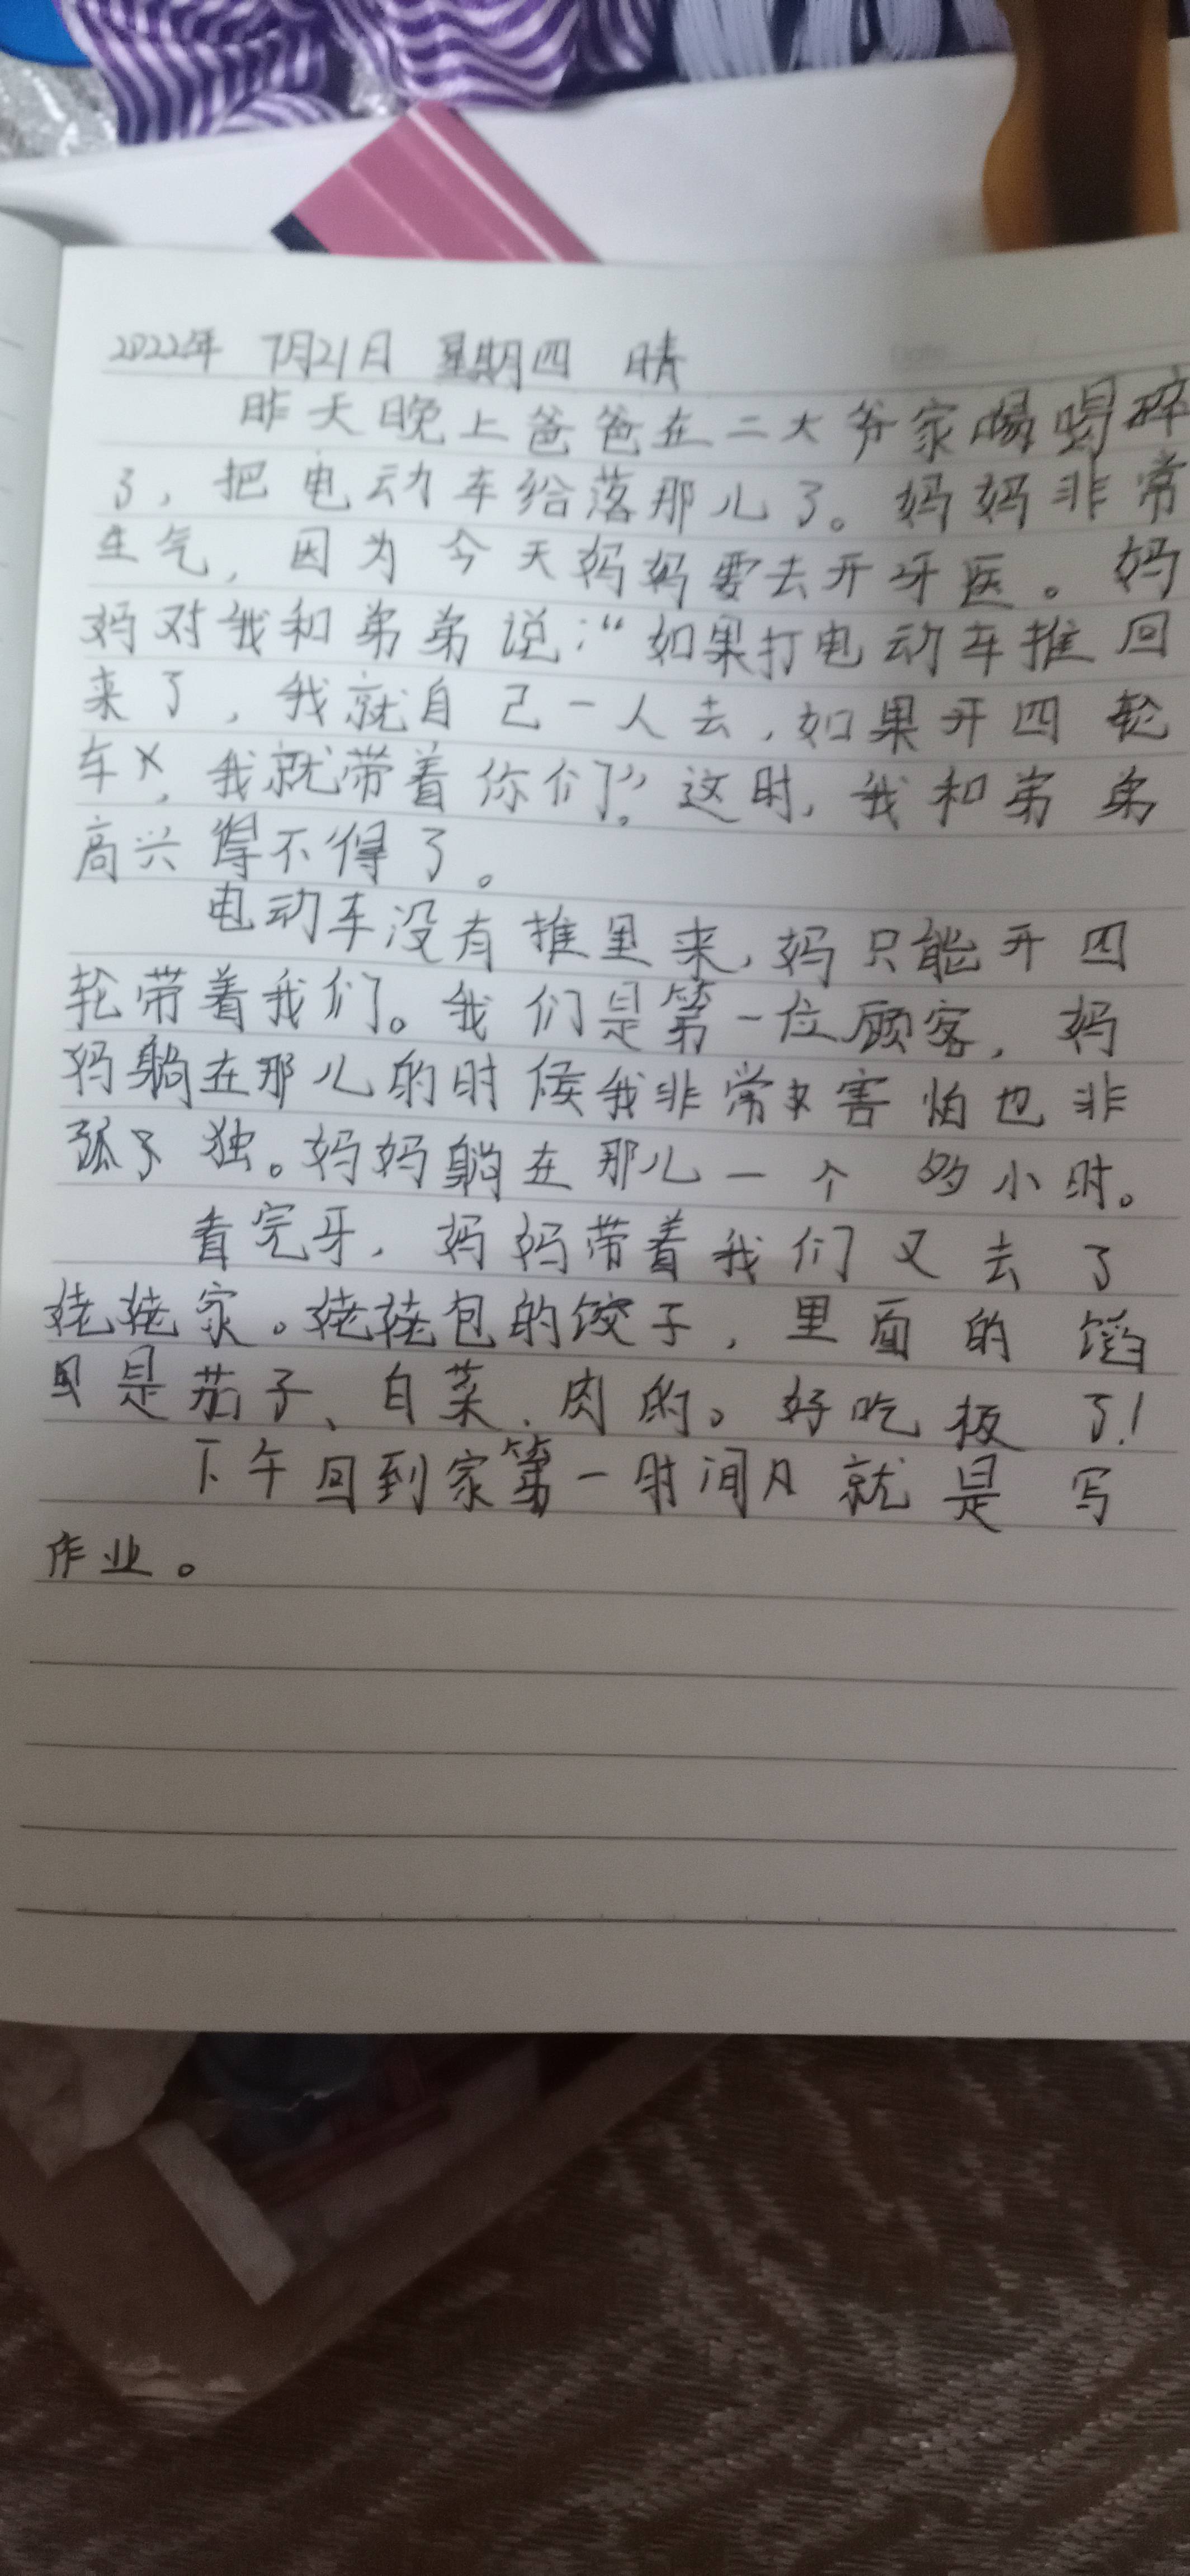 2022年 7月21日 星期四 晴
昨天晚上爸爸在二大爷家喝碎
了，把电动车给落那儿了。妈妈非常
生气，因为今天妈妈要去开牙医。妈
妈对我和弟弟说：“如果打电动车推回
来了，我就自己一人去，如果开四轮
车，我就带着你们”。这时，我和弟弟
高兴得不得了。
电动车没有推里来，妈只能开四
轮带着我们。我们是第一位顾客，妈
妈躺在那儿的时候我非常害怕也非
孤独。妈妈躺在那儿一个多小时。
看完牙，妈妈带着我们又去了
姥姥家。姥姥包的饺子，里面的馅
是茄子、白菜、肉的。好吃极了！
下午回到家第一时间就是写
作业。